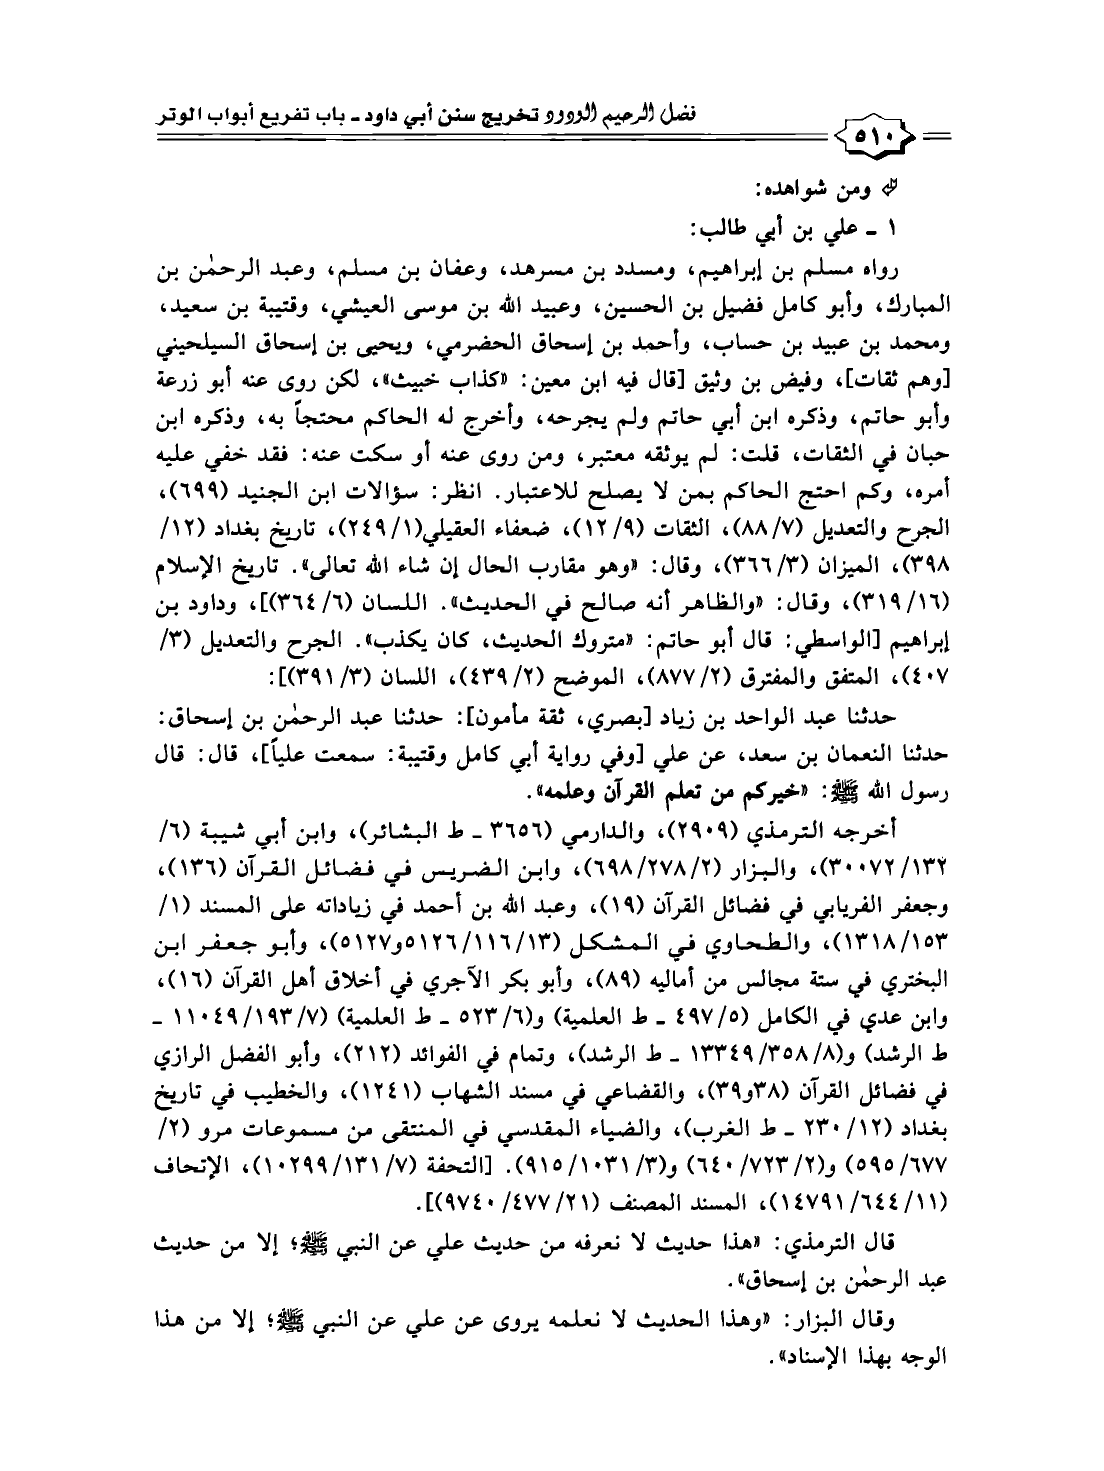 فضل الرحيم الودود تخريج سنن أبي داود ـ باب تفريع أبواب الوتر
٥١٠
ومن شواهده:
١ ـ علي بن أبي طالب:
رواه مسلم بن إبراهيم، ومسدد بن مسرهد، وعفان بن مسلم، وعبد الرحمٰن بن
المبارك، وأبو كامل فضيل بن الحسين، وعبيد الله بن موسى العيشي، وقتيبة بن سعيد،
ومحمد بن عبيد بن حساب، وأحمد بن إسحاق الحضرمي، ويحيى بن إسحاق السيلحيني
[وهم ثقات]، وفيض بن وثيق [قال فيه ابن معين: «كذاب خبيث»، لكن روى عنه أبو زرعة
وأبو حاتم، وذكره ابن أبي حاتم ولم يجرحه، وأخرج له الحاكم محتجاً به، وذكره ابن
حبان في الثقات، قلت: لم يوثقه معتبر، ومن روى عنه أو سكت عنه: فقد خفي عليه
أمره، وكم احتج الحاكم بمن لا يصلح للاعتبار. انظر: سؤالات ابن الجنيد (٦٩٩)،
الجرح والتعديل (٧/ ٨٨)، الثقات (٩/ ١٢)، ضعفاء العقيلي(١/ ٢٤٩)، تاريخ بغداد (١٢/
٣٩٨)، الميزان (٣/ ٣٦٦)، وقال: «وهو مقارب الحال إن شاء الله تعالى». تاريخ الإسلام
(١٦/ ٣١٩)، وقال: «والظاهر أنه صالح في الحديث». اللسان (٦/ ٣٦٤)]، وداود بن
إبراهيم [الواسطي: قال أبو حاتم: «متروك الحديث، كان يكذب». الجرح والتعديل (٣/
٤٠٧)، المتفق والمفترق (٢/ ٨٧٧)، الموضح (٢/ ٤٣٩)، اللسان (٣/ ٣٩١)]:
حدثنا عبد الواحد بن زياد [بصري، ثقة مأمون]: حدثنا عبد الرحمٰن بن إسحاق:
حدثنا النعمان بن سعد، عن علي [وفي رواية أبي كامل وقتيبة: سمعت علياً]، قال: قال
رسول الله ﷺ: «خيركم من تعلم القرآن وعلمه».
أخرجه الترمذي (٢٩٠٩)، والدارمي (٣٦٥٦ ـ ط البشائر)، وابن أبي شيبة (٦/
١٣٢/ ٣٠٠٧٢)، والبزار (٢/ ٢٧٨/ ٦٩٨)، وابن الضريس في فضائل القرآن (١٣٦)،
وجعفر الفريابي في فضائل القرآن (١٩)، وعبد الله بن أحمد في زياداته على المسند (١/
١٥٣/ ١٣١٨)، والطحاوي في المشكل (١٣/ ١١٦/ ٥١٢٦و٥١٢٧)، وأبو جعفر ابن
البختري في ستة مجالس من أماليه (٨٩)، وأبو بكر الآجري في أخلاق أهل القرآن (١٦)،
وابن عدي في الكامل (٥/ ٤٩٧ ـ ط العلمية) و(٦/ ٥٢٣ ـ ط العلمية) (٧/ ١٩٣/ ١١٠٤٩ ـ
ط الرشد) و(٨/ ٣٥٨/ ١٣٣٤٩ ـ ط الرشد)، وتمام في الفوائد (٢١٢)، وأبو الفضل الرازي
في فضائل القرآن (٣٨و٣٩)، والقضاعي في مسند الشهاب (١٢٤١)، والخطيب في تاريخ
بغداد (١٢/ ٢٣٠ ـ ط الغرب)، والضياء المقدسي في المنتقى من مسموعات مرو (٢/
٦٧٧/ ٥٩٥) و(٢/ ٧٢٣/ ٦٤٠) و(٣/ ١٠٣١/ ٩١٥). [التحفة (٧/ ١٣١/ ١٠٢٩٩)، الإتحاف
(١١/ ٦٤٤/ ١٤٧٩١)، المسند المصنف (٢١/ ٤٧٧/ ٩٧٤٠)].
قال الترمذي: «هذا حديث لا نعرفه من حديث علي عن النبي ﷺ؛ إلا من حديث
عبد الرحمٰن بن إسحاق».
وقال البزار: «وهذا الحديث لا نعلمه يروى عن علي عن النبي ﷺ؛ إلا من هذا
الوجه بهذا الإسناد».